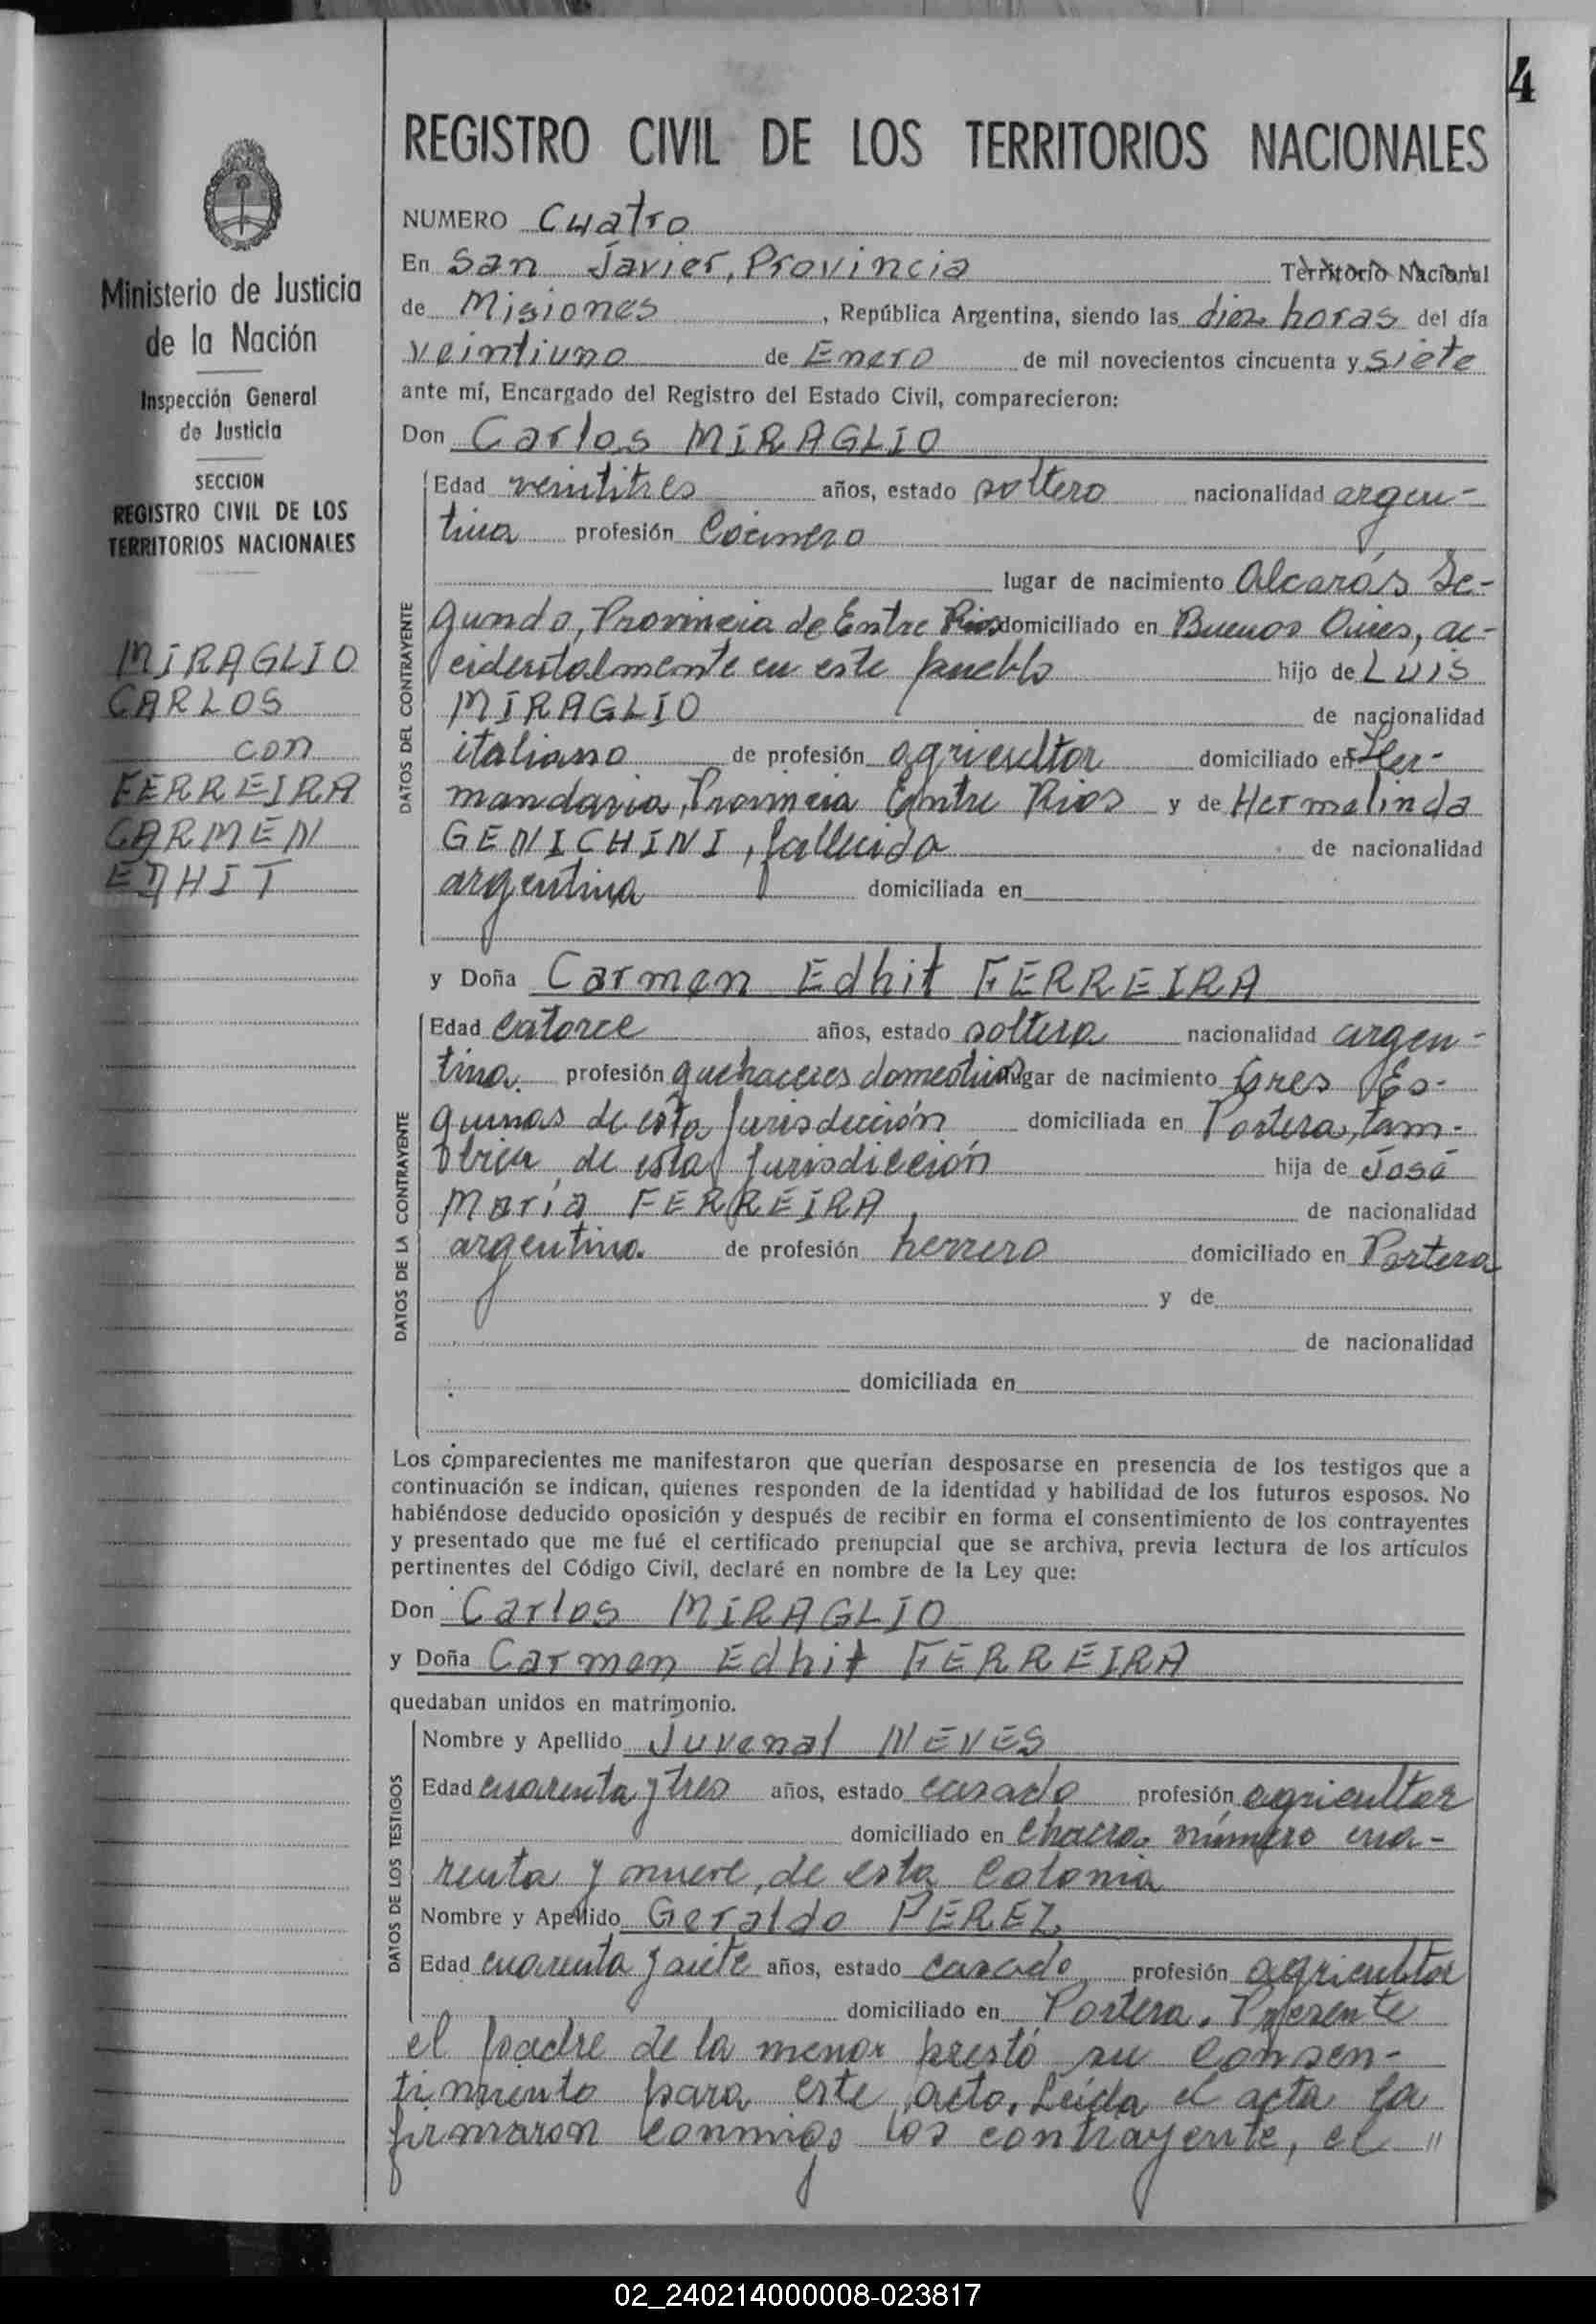 4
REGISTRO CIVIL DE LOS TERRITORIOS NACIONALES
Ministerio de Justicia
de la Nación
Inspección General
de Justicia
SECCION
REGISTRO CIVIL DE LOS
TERRITORIOS NACIONALES
MIRAGLIO
CARLOS
con
FERREIRA
CARMEN
EDHIT
NUMERO Cuatro
En San Javier, Provincia Territorio Nacional
de Misiones, República Argentina, siendo las diez horas del día
veintiuno de Enero de mil novecientos cincuenta y siete
ante mí, Encargado del Registro del Estado Civil, comparecieron:
Don Carlos MIRAGLIO
DATOS DEL CONTRAYENTE
Edad veintitres años, estado soltero nacionalidad argen-
tina profesión Cocinero
lugar de nacimiento Alcarás Se-
gundo, Provincia de Entre Rios domiciliado en Buenos Aires, ac-
cidentalmente en este pueblo hijo de LUIS
MIRAGLIO de nacionalidad
italiano de profesión agricultor domiciliado en Her-
nandaria, Provincia Entre Rios y de Hermelinda
GENICHINI, fallecida de nacionalidad
argentina domiciliada en
y Doña Carmen Edhit FERREIRA
DATOS DE LA CONTRAYENTE
Edad catorce años, estado soltera nacionalidad argen-
tina. profesión quehaceres domesticos lugar de nacimiento tres Es-
quinas de esta jurisdicción domiciliada en Portera, tam-
bien de esta jurisdicción hija de José
María FERREIRA, de nacionalidad
argentina. de profesión herrero domiciliado en Portera
y de
de nacionalidad
domiciliada en
Los comparecientes me manifestaron que querían desposarse en presencia de los testigos que a
continuación se indican, quienes responden de la identidad y habilidad de los futuros esposos. No
habiéndose deducido oposición y después de recibir en forma el consentimiento de los contrayentes
y presentado que me fué el certificado prenupcial que se archiva, previa lectura de los artículos
pertinentes del Código Civil, declaré en nombre de la Ley que:
Don Carlos MIRAGLIO
y Doña Carmen Edhit FERREIRA
quedaban unidos en matrimonio.
DATOS DE LOS TESTIGOS
Nombre y Apellido Juvenal NEVES
Edad cuarenta y tres años, estado casado profesión agricultor
domiciliado en chacra número cua-
renta y nueve, de esta Colonia
Nombre y Apellido Geraldo PEREZ
Edad cuarenta y siete años, estado casado profesión agricultor
domiciliado en Portera. Presente
el padre de la menor prestó su consen-
timiento para este acto. Leída el acta la
firmaron conmigo los contrayente, el "
02_240214000008-023817